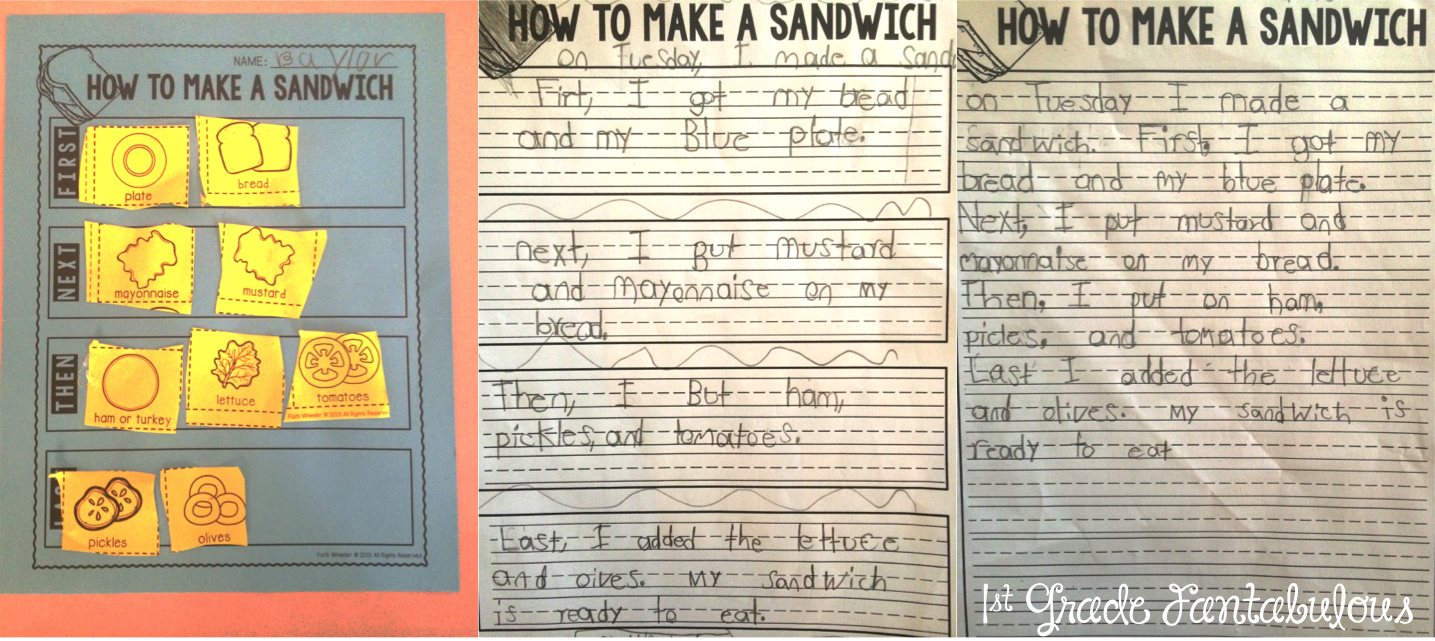 NAME: Baylor
HOW TO MAKE A SANDWICH
FIRST
plate
bread
NEXT
mayonnaise
mustard
THEN
ham or turkey
lettuce
tomatoes
Faith Wheeler © 2015 All Rights Reserved
pickles
olives
Faith Wheeler © 2015 All Rights Reserved
HOW TO MAKE A SANDWICH
on Tuesday, I made a Sand
Firt, I got my bread
and my Blue plate.
next, I put mustard
and mayonnaise on my
bread.
Then, I But ham,
pickles, and tomatoes.
Last, I added the lettuce
and oives. my sandwich
is ready to eat.
HOW TO MAKE A SANDWICH
on Tuesday I made a
sandwich. First, I got my
bread and my blue plate.
Next, I put mustard and
mayonnaise on my bread.
Then, I put on ham,
picles, and tomatoes.
Last I added the lettuce
and olives. my sandwich is
ready to eat
1st Grade Fantabulous